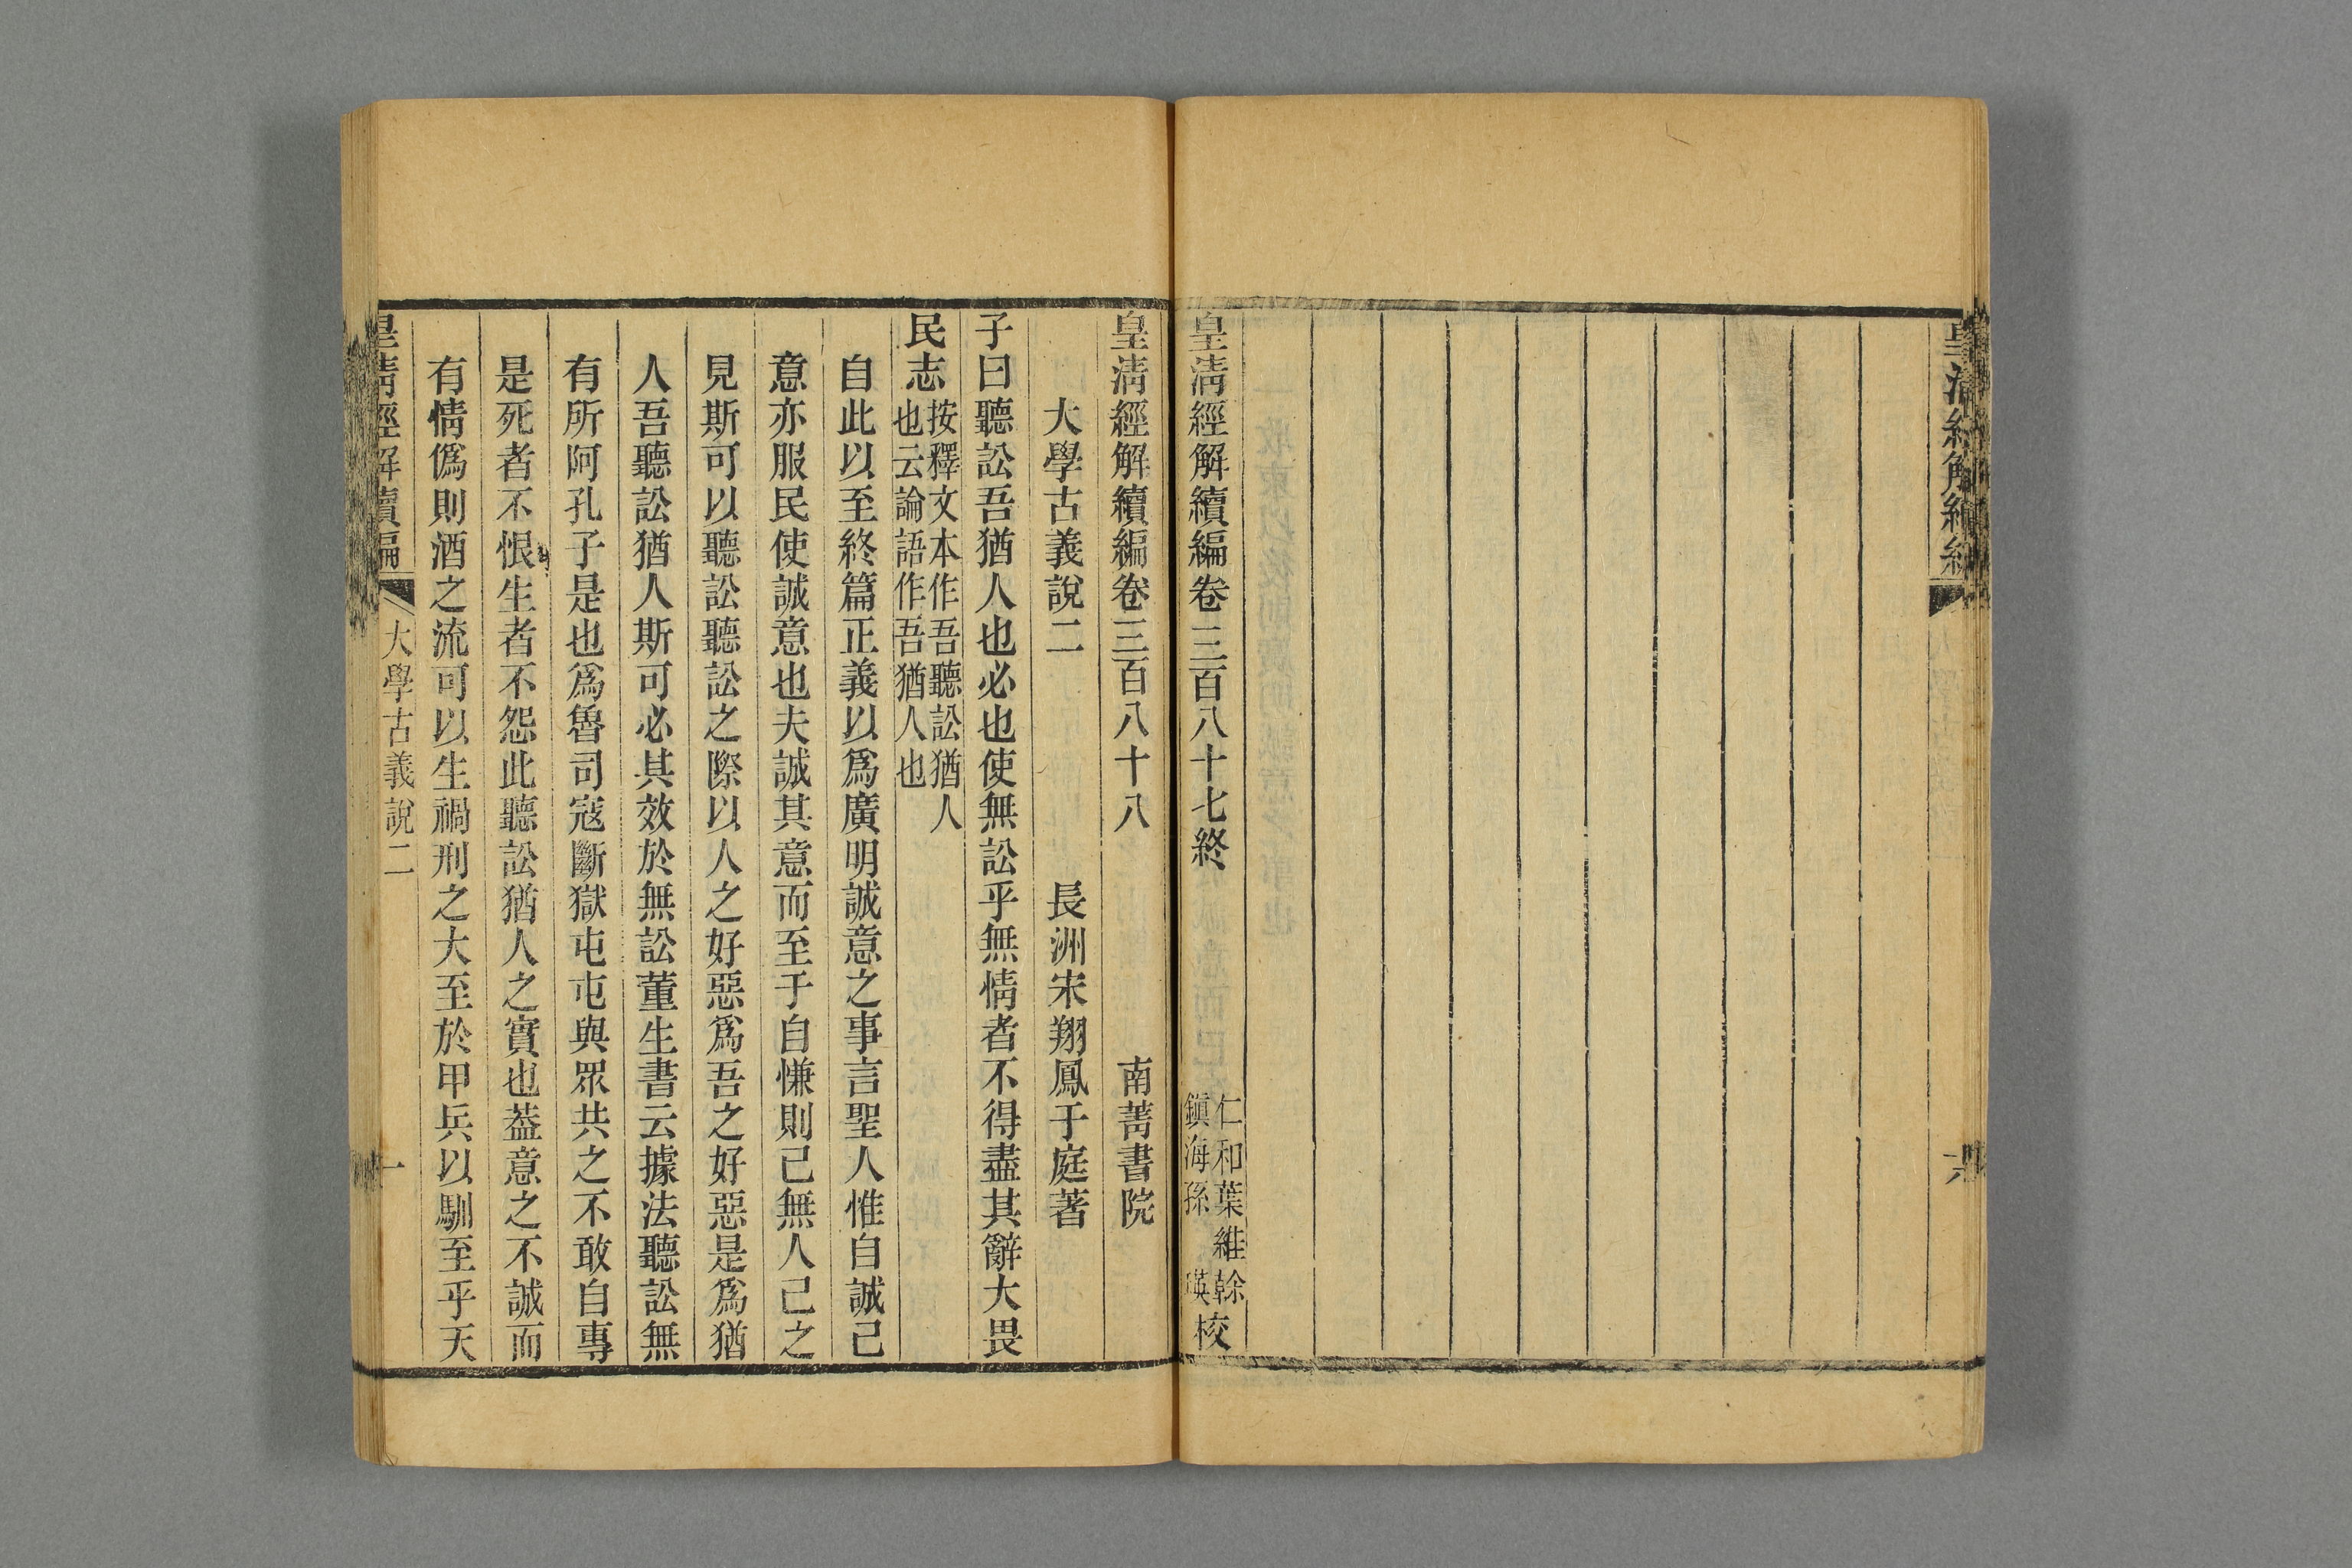 皇清經解續編
六
皇清經解續編卷三百八十七終
仁和葉維榦
鎮海孫 瑛
校
皇清經解續編卷三百八十八 南菁書院
大學古義說二 長洲宋翔鳳于庭著
子曰聽訟吾猶人也必也使無訟乎無情者不得盡其辭大畏
民志
按釋文本作吾聽訟猶人
也云論語作吾猶人也
自此以至終篇正義以爲廣明誠意之事言聖人惟自誠己
意亦服民使誠意也夫誠其意而至于自慊則己無人己之
見斯可以聽訟聽訟之際以人之好惡爲吾之好惡是爲猶
人吾聽訟猶人斯可必其效於無訟董生書云據法聽訟無
有所阿孔子是也爲魯司寇斷獄屯屯與眾共之不敢自專
是死者不恨生者不怨此聽訟猶人之實也葢意之不誠而
有情僞則酒之流可以生禍刑之大至於甲兵以馴至乎天
皇清經解續編
大學古義說二
一